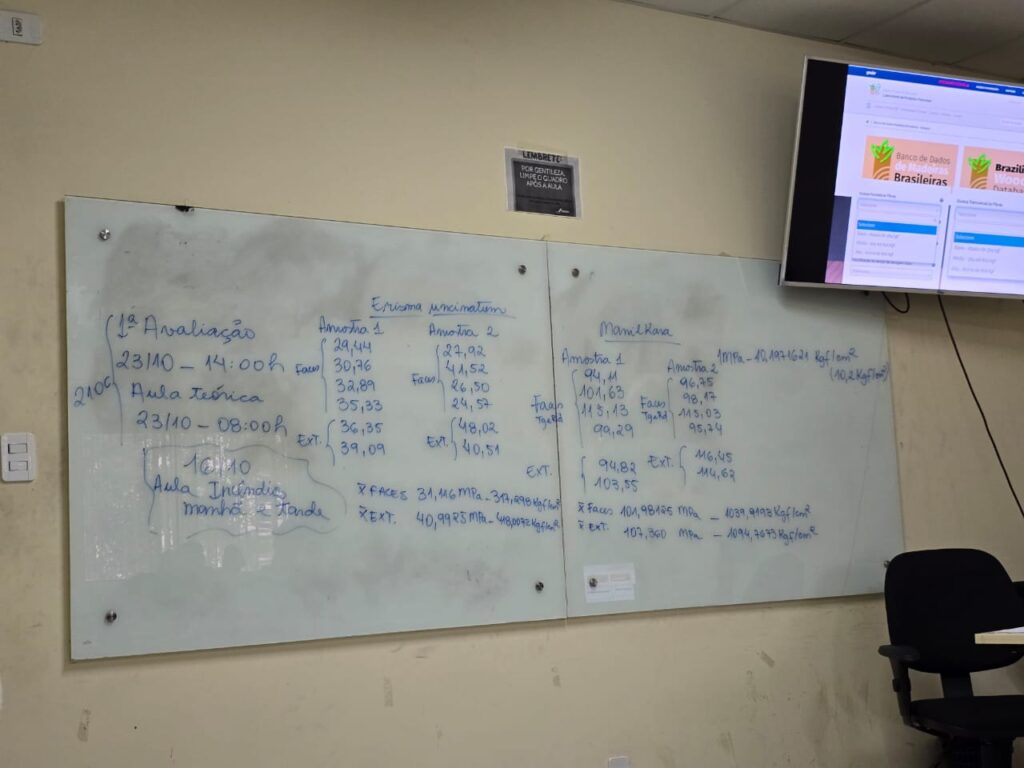 LEMBRETE:
POR GENTILEZA,
LIMPE O QUADRO
APÓS A AULA
Banco de Dados
de Madeiras
Brasileiras
1ª Avaliação
23/10 - 14:00h
Aula teórica
23/10 - 08:00h
2106
10/10
Aula Incêndio
manhã e Tarde
Erisma uncinatum
Amostra 1
Faces
29,44
30,76
32,89
35,33
EXT.
36,35
39,09
Amostra 2
Faces
27,92
41,52
26,50
24,57
EXT.
48,02
40,51
x̄ FACES 31,116 MPa - 317,298 Kgf/cm²
x̄ EXT. 40,9925 MPa - 418,0072 Kgf/cm²
Manilkara
1MPa - 10,1971621 Kgf/cm²
(10,2 Kgf/cm²)
Amostra 1
Faces
94,11
101,63
115,13
99,29
EXT.
94,82
103,55
Amostra 2
Faces
96,75
98,17
115,03
95,74
EXT.
116,45
114,62
x̄ Faces 101,98125 MPa - 1039,9193 Kgf/cm²
x̄ EXT. 107,360 MPa - 1094,7673 Kgf/cm²